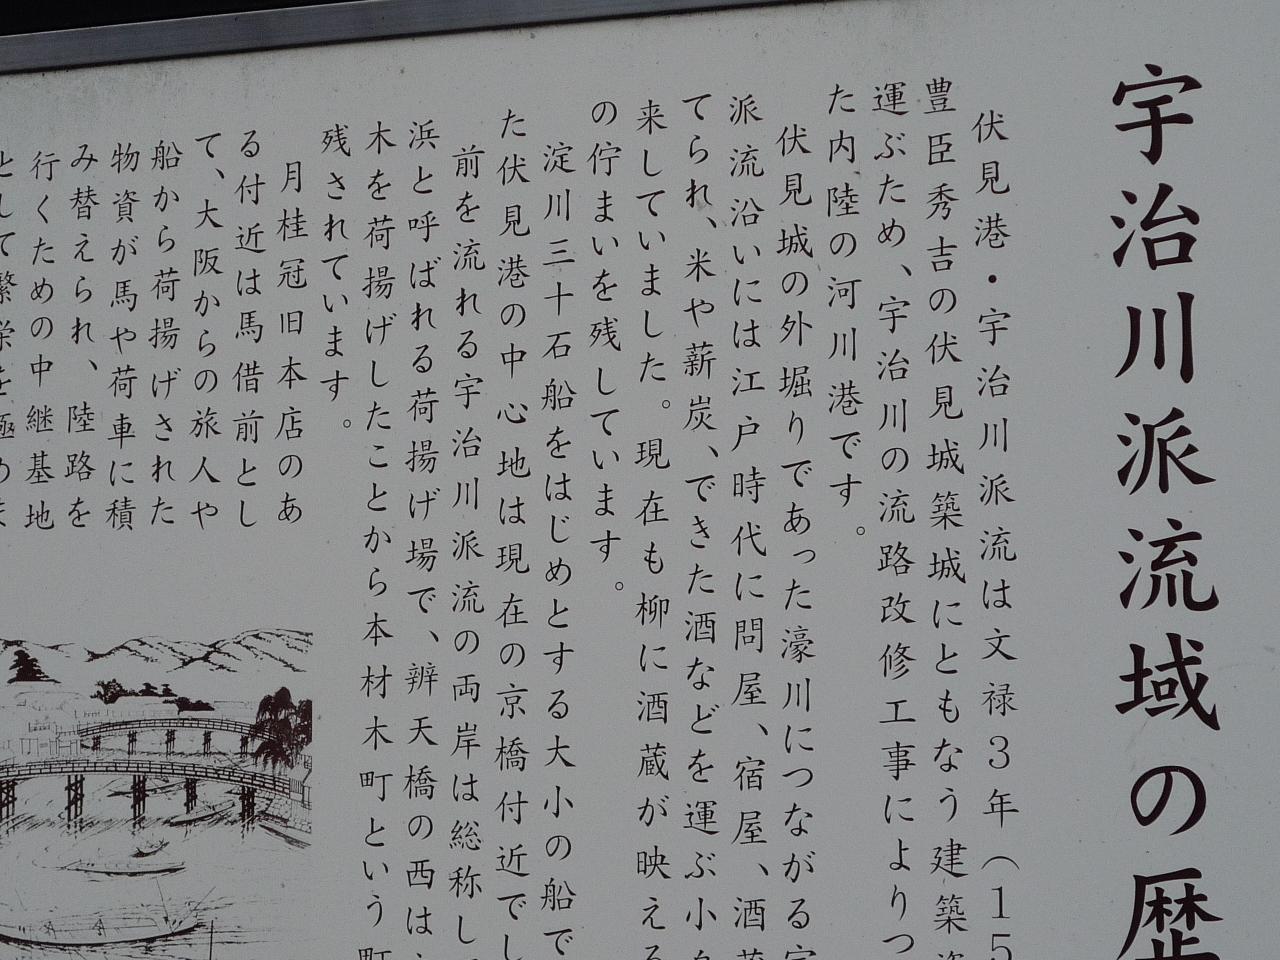 宇治川派流域の歴
伏見港・宇治川派流は文禄3年（15
豊臣秀吉の伏見城築城にともなう建築資
運ぶため、宇治川の流路改修工事によりつ
た内陸の河川港です。
伏見城の外堀りであった濠川につながる宇
派流沿いには江戸時代に問屋、宿屋、酒蔵
てられ、米や薪炭、できた酒などを運ぶ小
来していました。現在も柳に酒蔵が映える
の佇まいを残しています。
淀川三十石船をはじめとする大小の船で
た伏見港の中心地は現在の京橋付近でし
前を流れる宇治川派流の両岸は総称して
浜と呼ばれる荷揚げ場で、辨天橋の西は
木を荷揚げしたことから本材木町という町
残されています。
月桂冠旧本店のあ
る付近は馬借前とし
て、大阪からの旅人や
船から荷揚げされた
物資が馬や荷車に積
み替えられ、陸路を
行くための中継基地
として繁栄を極めま